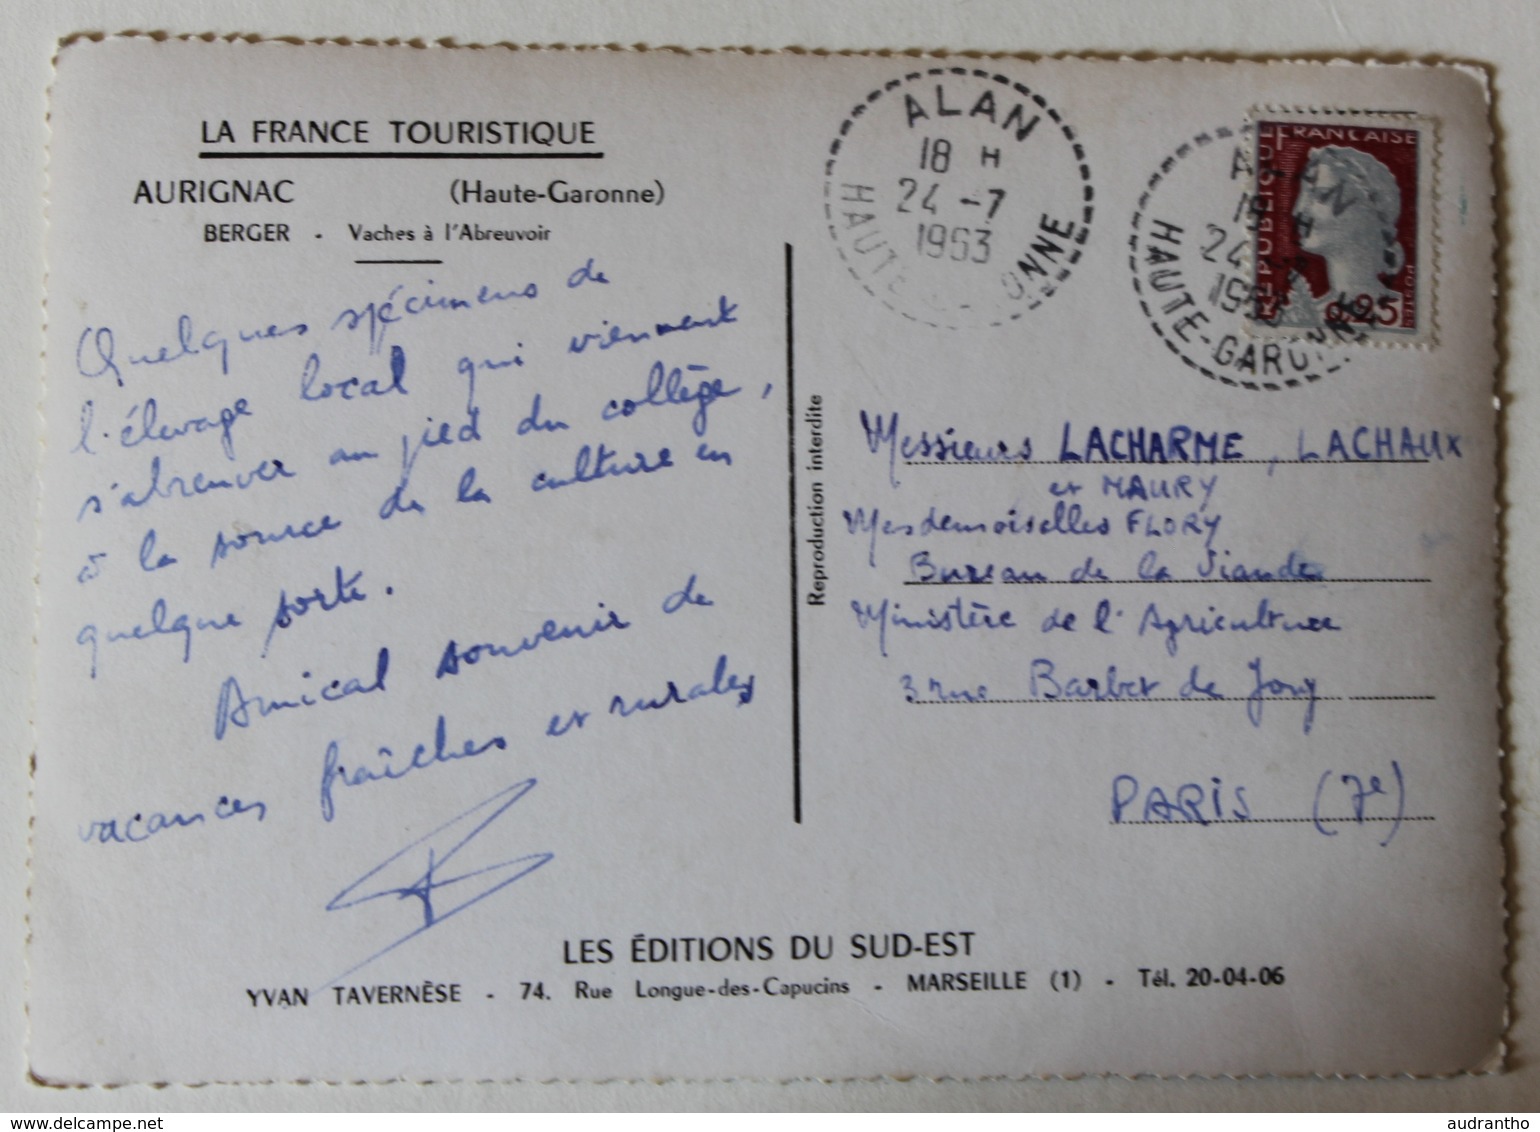 LA FRANCE TOURISTIQUE
AURIGNAC (Haute-Garonne)
BERGER - Vaches à l'Abreuvoir
Quelques spécimens de
l'élevage local qui viennent
s'abreuver au pied du collège,
à la source de la culture en
quelque sorte.
Amical souvenir de
vacances fraîches et rurales
Reproduction interdite
ALAN
18 H
24 -7
1963
HAUTE-GARONNE
ALAN
18 H
24 -7
1963
HAUTE-GARONNE
REPUBLIQUE FRANCAISE
0,25
Messieurs LACHARME, LACHAUX
et MAURY
Mesdemoiselles FLORY
Bureau de la Viande
Ministère de l'Agriculture
3 rue Barbet de Jouy
PARIS (7e)
LES ÉDITIONS DU SUD-EST
YVAN TAVERNÈSE - 74. Rue Longue-des-Capucins - MARSEILLE (1) - Tél. 20-04-06
audrantho